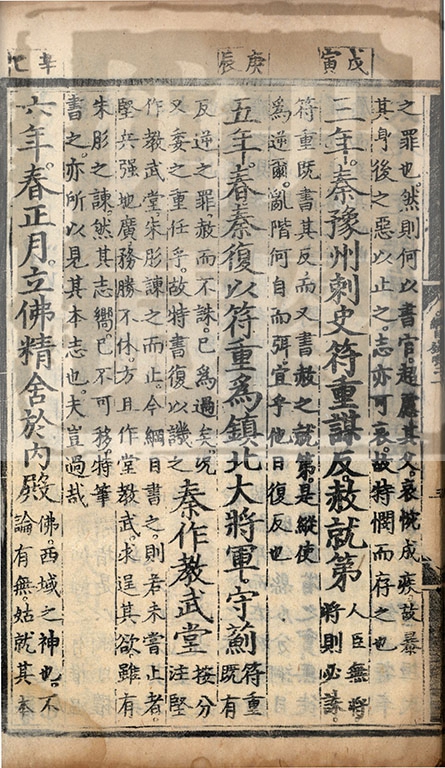 戊寅
庚辰
辛巳
之罪也然則何以書官超慝其父哀惋成疾故暴
其身後之惡以止之志亦可哀故特憫而存之也
三年秦豫州刺史符重謀反赦就第
人臣無將
將則必誅
符重既書其反而又書赦之就第是縱使
爲逆爾亂階何自而弭宣乎他日復反也
五年春秦復以符重爲鎮北大將軍守薊
符重
既有
反逆之罪赦而不誅已爲過矣况
又委之重任乎故特書復以譏之
秦作教武堂
按分
注堅
作教武堂朱肜諫之而止今綱目書之則若未嘗止者
堅兵强地廣務勝不休方且作堂教武求逞其欲雖有
朱肜之諫然其志嚮已不可移特筆
書之亦所以見其本志也夫豈過哉
六年春正月立佛精舍於内殿
佛西域之神也不
論有無姑就其本